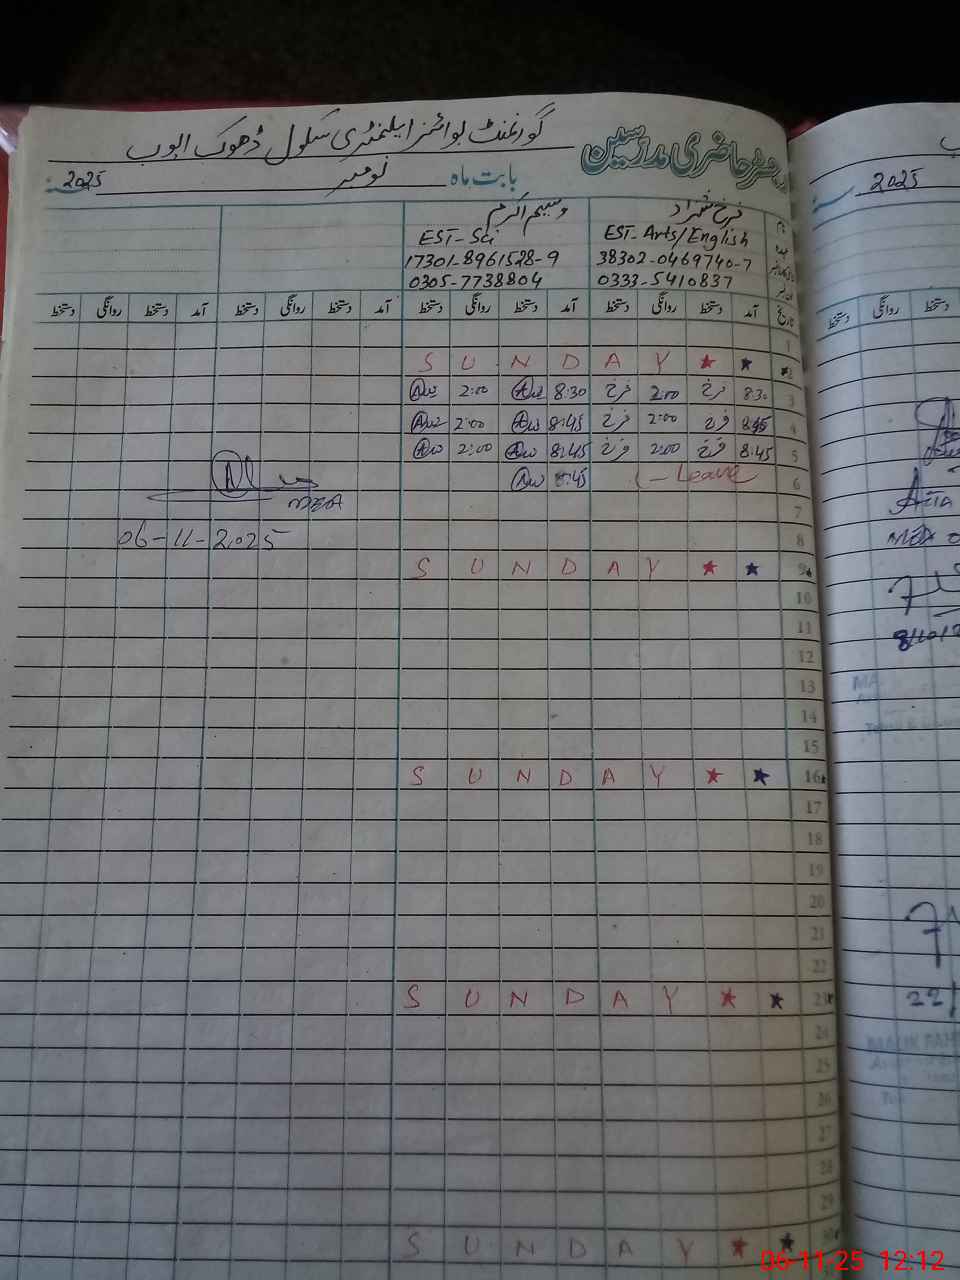 گورنمنٹ بوائز ایلیمنٹری سکول ڈھوک ایوب
حاضری مدرسین
بابت ماہ نومبر 2025
فرخ شہزاد
EST-Arts/English
38302-0469740-7
0333-5410837
وسیم اکرم
EST-Sci
17301-8961528-9
0305-7738804
تاریخ آمد دستخط روانگی دستخط آمد دستخط روانگی دستخط آمد دستخط روانگی دستخط آمد دستخط روانگی دستخط
1
2 S U N D A Y ★ ★
3 8:30 فرخ 2:00 فرخ 8:30 2:00
4 8:45 فرخ 2:00 فرخ 8:45 2:00
5 8:45 فرخ 2:00 فرخ 8:45 2:00
6 Leave 8:45
7
8
9 S U N D A Y ★ ★
10
11
12
13
14
15
16 S U N D A Y ★ ★
17
18
19
20
21
22
23 S U N D A Y ★ ★
24
25
26
27
28
29
30 S U N D A Y ★ ★
MEA
06-11-2025
2025
دستخط روانگی دستخط
MEA
22/
06-11-25 12:12